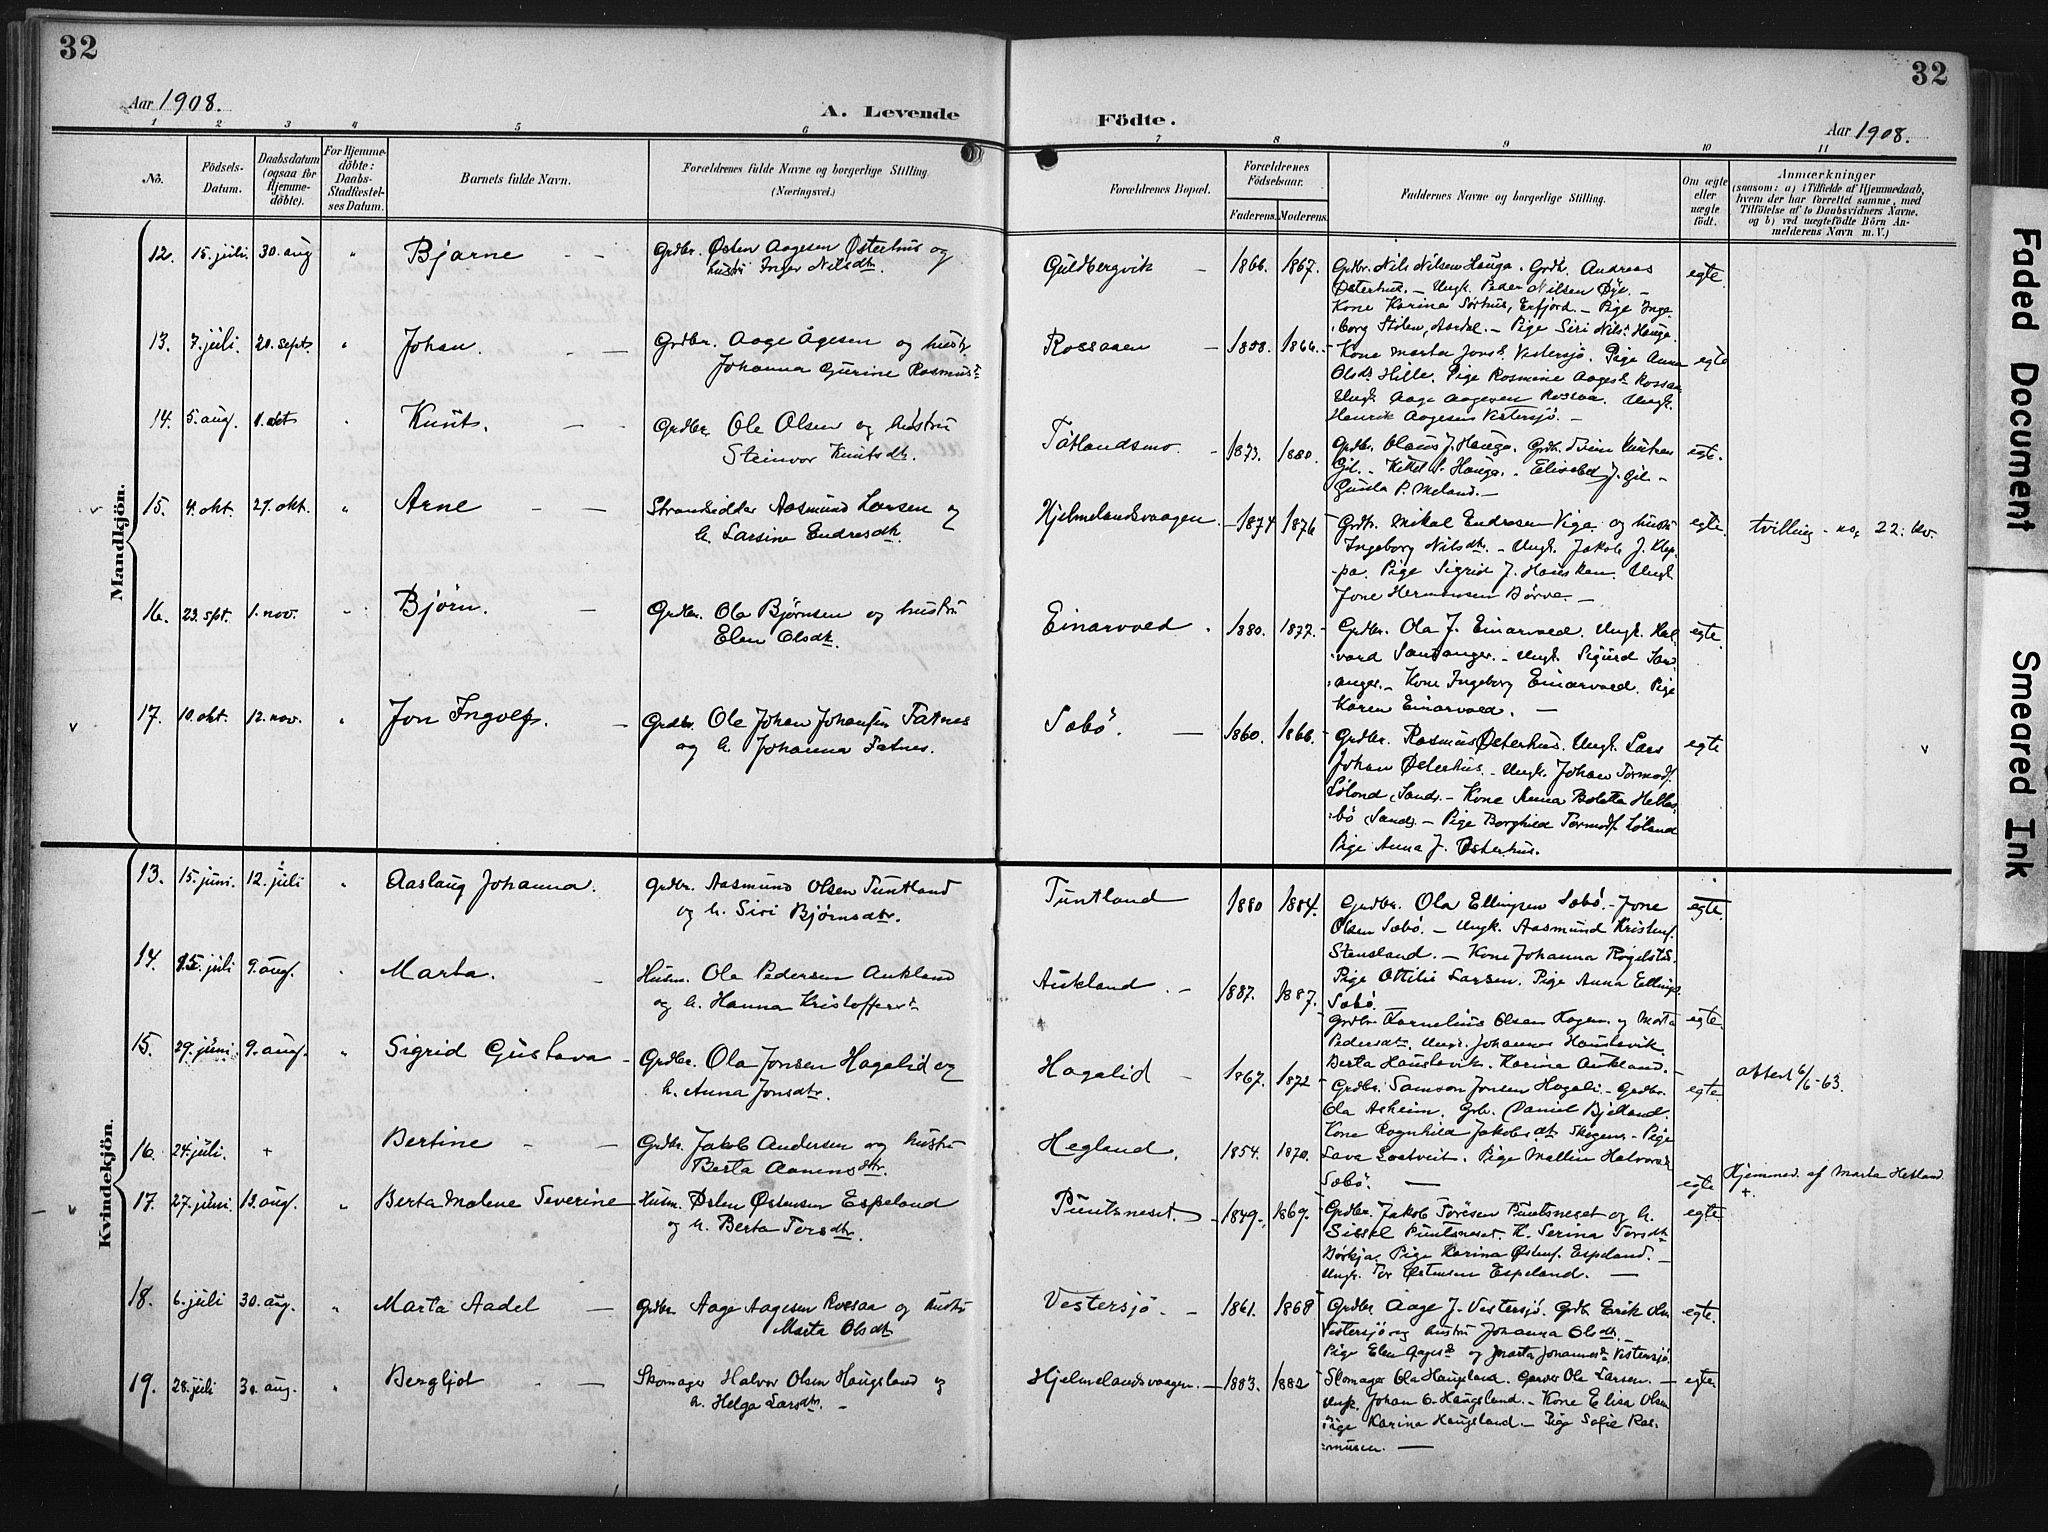 32
32
Aar 1908.
A. Levende
Födte.
Aar 1908.
1 2 3 4 5 6 7 8 9 10 11
No.
Födsels-Datum.
Daabsdatum (ogsaa for Hjemmedöbte).
For Hjemmedöbte: Daabs-Stadfestelses Datum.
Barnets fulde Navn.
Forældrenes fulde Navne og borgerlige Stilling. (Næringsvei.)
Forældrenes Bopæl.
Forældrenes Födselsaar.
Faderens. Moderens.
Faddernes Navne og borgerlige Stilling.
Om ægte eller uægte födt.
Anmærkninger
(saasom: a) i Tilfælde af Hjemmedaab, hvem der har forrettet samme, med Tilföielse af to Daabsvidners Navne. og b) ved uægtefödte Börn Anmelderens Navn m. V.)
Mandkjön.
12. 15. juli. 30. aug " Bjarne - - Grdbr. Østen Aagesen Østerhus og
hustri Inger Nilsdtr.
Guldbergvik - 1866. 1867. Grdbr. Nils Nilsen Hauga. Grdb. Andreas
Østerhus. - Ungk. Peder Nilsen Øye. -
Kone Karina Sørhus, Erfjord. - Pige Inge-
borg Stølen, Aardal. - Pige Siri Nilsd. Hauga.
egte.
13. 7. juli. 20. septs. " Johan. - - Grdbr. Aage Ågesen og hustr.
Johanna Gurine Rasmusd.
Rossaaen - 1858. 1866. Kone Marta Jonsd. Vestersjø. Pige Anna
Olsdt. Hille. Pige Rasmine Aagesd. Rossaa.
Ungk. Aage Aagesen Rossaa. Ungk.
Henrik Aagesen Vestersjø. -
egte
14. 5. aug. 1. okt " Knut. - - Grdbr. Ole Olsen og hustru
Steinvor Knutsdtr.
Tøtlandsmo. - 1873. 1880. Grdbr. Olaus J. Hauga.
Gil. - Kittel S. Hauga. - Elisabet J. Gil -
Gunla P. Meland. -
egte.
15. 4. okt. 29. okt. " Arne - - Strandsidder Aasmund Larsen og
h. Larsine Endresdtr.
Hjelmelandsvaagen. - 1874 1876 Grdbr. Mikal Endresen Viga og hustr.
Ingeborg Nilsdtr. - Ungk. Jakob J. Klep-
pa. Pige Sigrid J. Hausken. Ungk.
Jone Hermansen Børve. -
egte. tvilling - no. 22. kv.
16. 23. spt. 1. nov. " Bjørn. - Grdbr. Ola Bjørnsen og hustru
Elen Olsdtr.
Einarvoed. 1880. 1877. Grdbr. Ola J. Einarvoed. Ungk. Hal-
vard Sandanger. - Ungk. Sigurd San-
anger. - Kone Ingeborg Einarvoed. Pige
Karen Einarvoed. -
egte.
17. 10. okt. 12. nov. " Jon Ingolf. - Grdbr. Ole Johan Johansen Fatnes
og h. Johanna Fatnes.
Sæbø. - 1860. 1866. Grdbr. Rasmus Østerhus. Ungk. Lars
Johan Østerhus. - Ungk. Johan Tormodf.
Løland, Sand. - Kone Anna Bolette Hellas-
bø, Sand. - Pige Borghild Tormodf. Løland
Pige Anna J. Østerhus.
egte
Kvindekjön.
13. 15. juni. 12. juli " Aaslaug Johanna. Grdbr. Aasmund Olsen Tuntland
og h. Siri Bjørnsdtr.
Tuntland 1880 1884. Grdbr. Ola Ellingsen Sæbø. - Jone
Olsen Sæbø. - Ungk. Aasmund Kristenf.
Stensland. - Kone Johanna Rogelstd.
Pige Ottilie Larsen. Pige Anna Ellingsd.
Sæbø.
egte.
14. 15. juli 9. aug. " Marta. - Husm. Ola Pedersen Aukland
og h. Hanna Kristoffersd.
Aukland. - 1887. 1887. Grdbr. Kornelius Olsen Hagen og Marta
Pedersdtr. Ungk. Johannes Hauslevik.
Berta Hauslevik. Karina Aukland. -
egte.
15. 29. juni 9. aug. " Sigrid Gustava - Grdbr. Ola Jonsen Hagalid og
h. Anna Jonsdtr.
Hagalid - 1867. 1872 Grdbr. Samson Jonsen Hagali. - Grdbr.
Ola Asheim. Grb. Daniel Bjelland.
Kone Ragnhild Jakobsdt. Skogen. - Pige
Lava Lastveit. Pige Mallin Halvorsd.
Sæbø. -
egte. attest 6/6-63.
16. 24. juli. + Bertine - - Grdbr. Jakob Andersen og hustru
Berta Aanensdtr.
Hegland. 1854. 1870.
egte Hjemmed. af Marta Hetland
+.
17. 27. juni 13. aug. " Berta Malene Severine Husm. Østen Østensen Espeland
og h. Berta Torsdtr.
Puntsneset. - 1849. 1869. Grdbr. Jakob Toresen Puntsneset og h.
Sissel Puntsneset. K. Serina Torsdt.
Børkja. Pige Karina Østenf. Espeland. -
Ungk. Tor Østensen Espeland. -
egte.
18. 6. juli 30. aug. " Marta Aadel - Grdbr. Aage Aagesen Rossaa og hustru
Marta Olsdtr.
Vestersjø. - 1861. 1868 Grdbr. Aage J. Vestersjø. Grdb. Erik Olsn
Vestersjø og hustru Johanna Olsdt. -
Pige Elen Aagesd. og Marta Johannesd. Vestersjø.
egte.
19. 28. juli 30. aug. " Bergljot - - Skomager Halvor Olsen Haugsland og
h. Helga Larsdtr. -
Hjelmelandsvaagen. - 1883. 1882 Skomager Ola Haugsland. Garver Ole Larsen. -
Ungk. Johan O. Haugsland. - Kone Elisa Olsen
Pige Karina Haugsland. - Pige Sofie Ras-
mussen. -
egte.
Faded Document
Smeared Ink